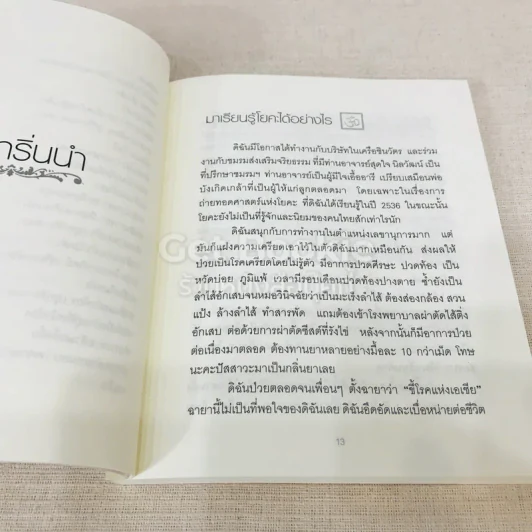 าริ่นนำ
มาเรียนรู้โยคะได้อย่างไร
ดิฉันมีโอกาสได้ทำงานกับบริษัทในเครือชินวัตร และร่วม
งานกับชมรมส่งเสริมจริยธรรม ที่มีท่านอาจารย์สุดใจ นิลวัฒน์ เป็น
ที่ปรึกษาชมรมฯ ท่านอาจารย์เป็นผู้มีใจเอื้ออารี เปรียบเสมือนพ่อ
บังเกิดเกล้าที่เป็นผู้ให้แก่ลูกตลอดมา โดยเฉพาะในเรื่องการ
ถ่ายทอดศาสตร์แห่งโยคะ ที่ดิฉันได้เรียนรู้ในปี 2536 ในขณะนั้น
โยคะยังไม่เป็นที่รู้จักและนิยมของคนไทยสักเท่าไรนัก
ดิฉันสนุกกับการทำงานในตำแหน่งเลขานุการมาก แต่
มันก็แฝงความเครียดเอาไว้ในตัวดิฉันมากเหมือนกัน ส่งผลให้
ป่วยเป็นโรคเครียดโดยไม่รู้ตัว มีอาการปวดศีรษะ ปวดท้อง เป็น
หวัดบ่อย ภูมิแพ้ เวลามีรอบเดือนปวดท้องปางตาย ซ้ำยังเป็น
ลำไส้อักเสบจนหมอวินิจฉัยว่าเป็นมะเร็งลำไส้ ต้องส่องกล้อง สวน
แป้ง ล้างลำไส้ ทำสารพัด แถมต้องเข้าโรงพยาบาลผ่าตัดไส้ติ่ง
อักเสบ ต่อด้วยการผ่าตัดซีสต์ที่รังไข่ หลังจากนั้นก็มีอาการป่วย
ต่อเนื่องมาตลอด ต้องทานยาหลายอย่างมื้อละ 10 กว่าเม็ด โทษ
นะคะปัสสาวะมาเป็นกลิ่นยาเลย
ดิฉันป่วยตลอดจนเพื่อนๆ ตั้งฉายาว่า “ขี้โรคแห่งเอเชีย”
ฉายานี้ไม่เป็นที่พอใจของดิฉันเลย ดิฉันอึดอัดและเบื่อหน่ายต่อชีวิต
13